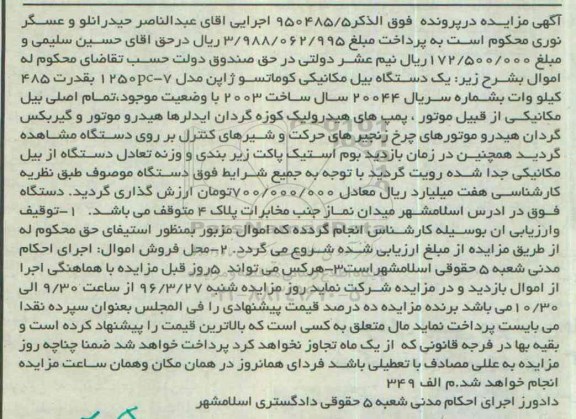 آگهی مزایده درپرونده فوق الذکر ۹۵۰۴۸۵/۵ اجرایی اقای عبدالناصر حیدرانلو و عسگر
نوری محکوم است به پرداخت مبلغ ۳/۹۸۸/۰۶۲/۹۹۵ ریال درحق اقای حسین سلیمی و
مبلغ ۱۷۲/۵۰۰/۰۰۰ریال نیم عشر دولتی در حق صندوق دولت حسب تقاضای محکوم له
اموال بشرح زیر: یک دستگاه بیل مکانیکی کوماتسو ژاپن مدل ۷-۱۲۵۰pc بقدرت ۴۸۵
کیلو وات بشماره سریال ۲۰۰۴۴ سال ساخت ۲۰۰۳ با وضعیت موجود،تمام اصلی بیل
مکانیکی از قبیل موتور ، پمپ های هیدرولیک کوزه گردان ایدلرها هیدرو موتور و گیربکس
گردان هیدرو موتورهای چرخ زنجیر های حرکت و شیرهای کنترل بر روی دستگاه مشاهده
گردید همچنین در زمان بازدید بوم استیک پاکت زیر بندی و وزنه تعادل دستگاه از بیل
مکانیکی جدا شده رویت گردید با توجه به جمیع شرایط فوق دستگاه موصوف طبق نظریه
کارشناسی هفت میلیارد ریال معادل ۷۰۰/۰۰۰/۰۰۰تومان ارزش گذاری گردید. دستگاه
فوق در ادرس اسلامشهر میدان نماز جنب مخابرات پلاک ۴ متوقف می باشد. ۱-توقیف
وارزیابی ان بوسیله کارشناس انجام گردده که اموال مزبور بمنظور استیفای حق محکوم له
از طریق مزایده از مبلغ ارزیابی شده شروع می گردد. ۲-محل فروش اموال: اجرای احکام
مدنی شعبه ۵ حقوقی اسلامشهراست۳-هرکس می تواند ۵روز قبل مزایده با هماهنگی اجرا
از اموال بازدید و در مزایده شرکت نماید روز مزایده شنبه ۹۶/۳/۲۷ از ساعت ۹/۳۰ الی
۱۰/۳۰می باشد برنده مزایده ده درصد قیمت پیشنهادی را فی المجلس بعنوان سپرده نقدا
می بایست پرداخت نماید مال متعلق به کسی است که بالاترین قیمت را پیشنهاد کرده است و
بقیه بها در فرجه قانونی که از یک ماه تجاوز نخواهد کرد پرداخت خواهد شد ضمنا چناچه روز
مزایده به عللی مصادف با تعطیلی باشد فردای همانروز در همان مکان وهمان ساعت مزایده
انجام خواهد شد.م الف ۳۴۹
دادورز اجرای احکام مدنی شعبه ۵ حقوقی دادگستری اسلامشهر